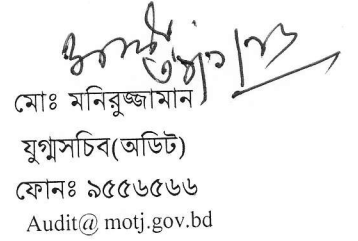 মোঃ মনিরুজ্জামান
যুগ্মসচিব(অডিট)
ফোনঃ ৯৫৫৬৫৬৬
Audit@ motj.gov.bd